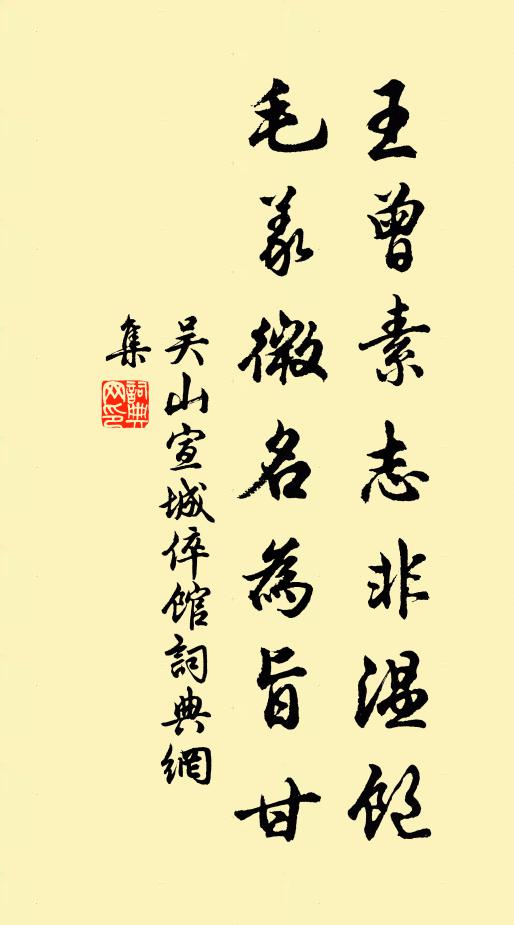 王曾素志非温飽
毛義微名為旨甘
吴山宣城倅館詞典網
集
詞典網印